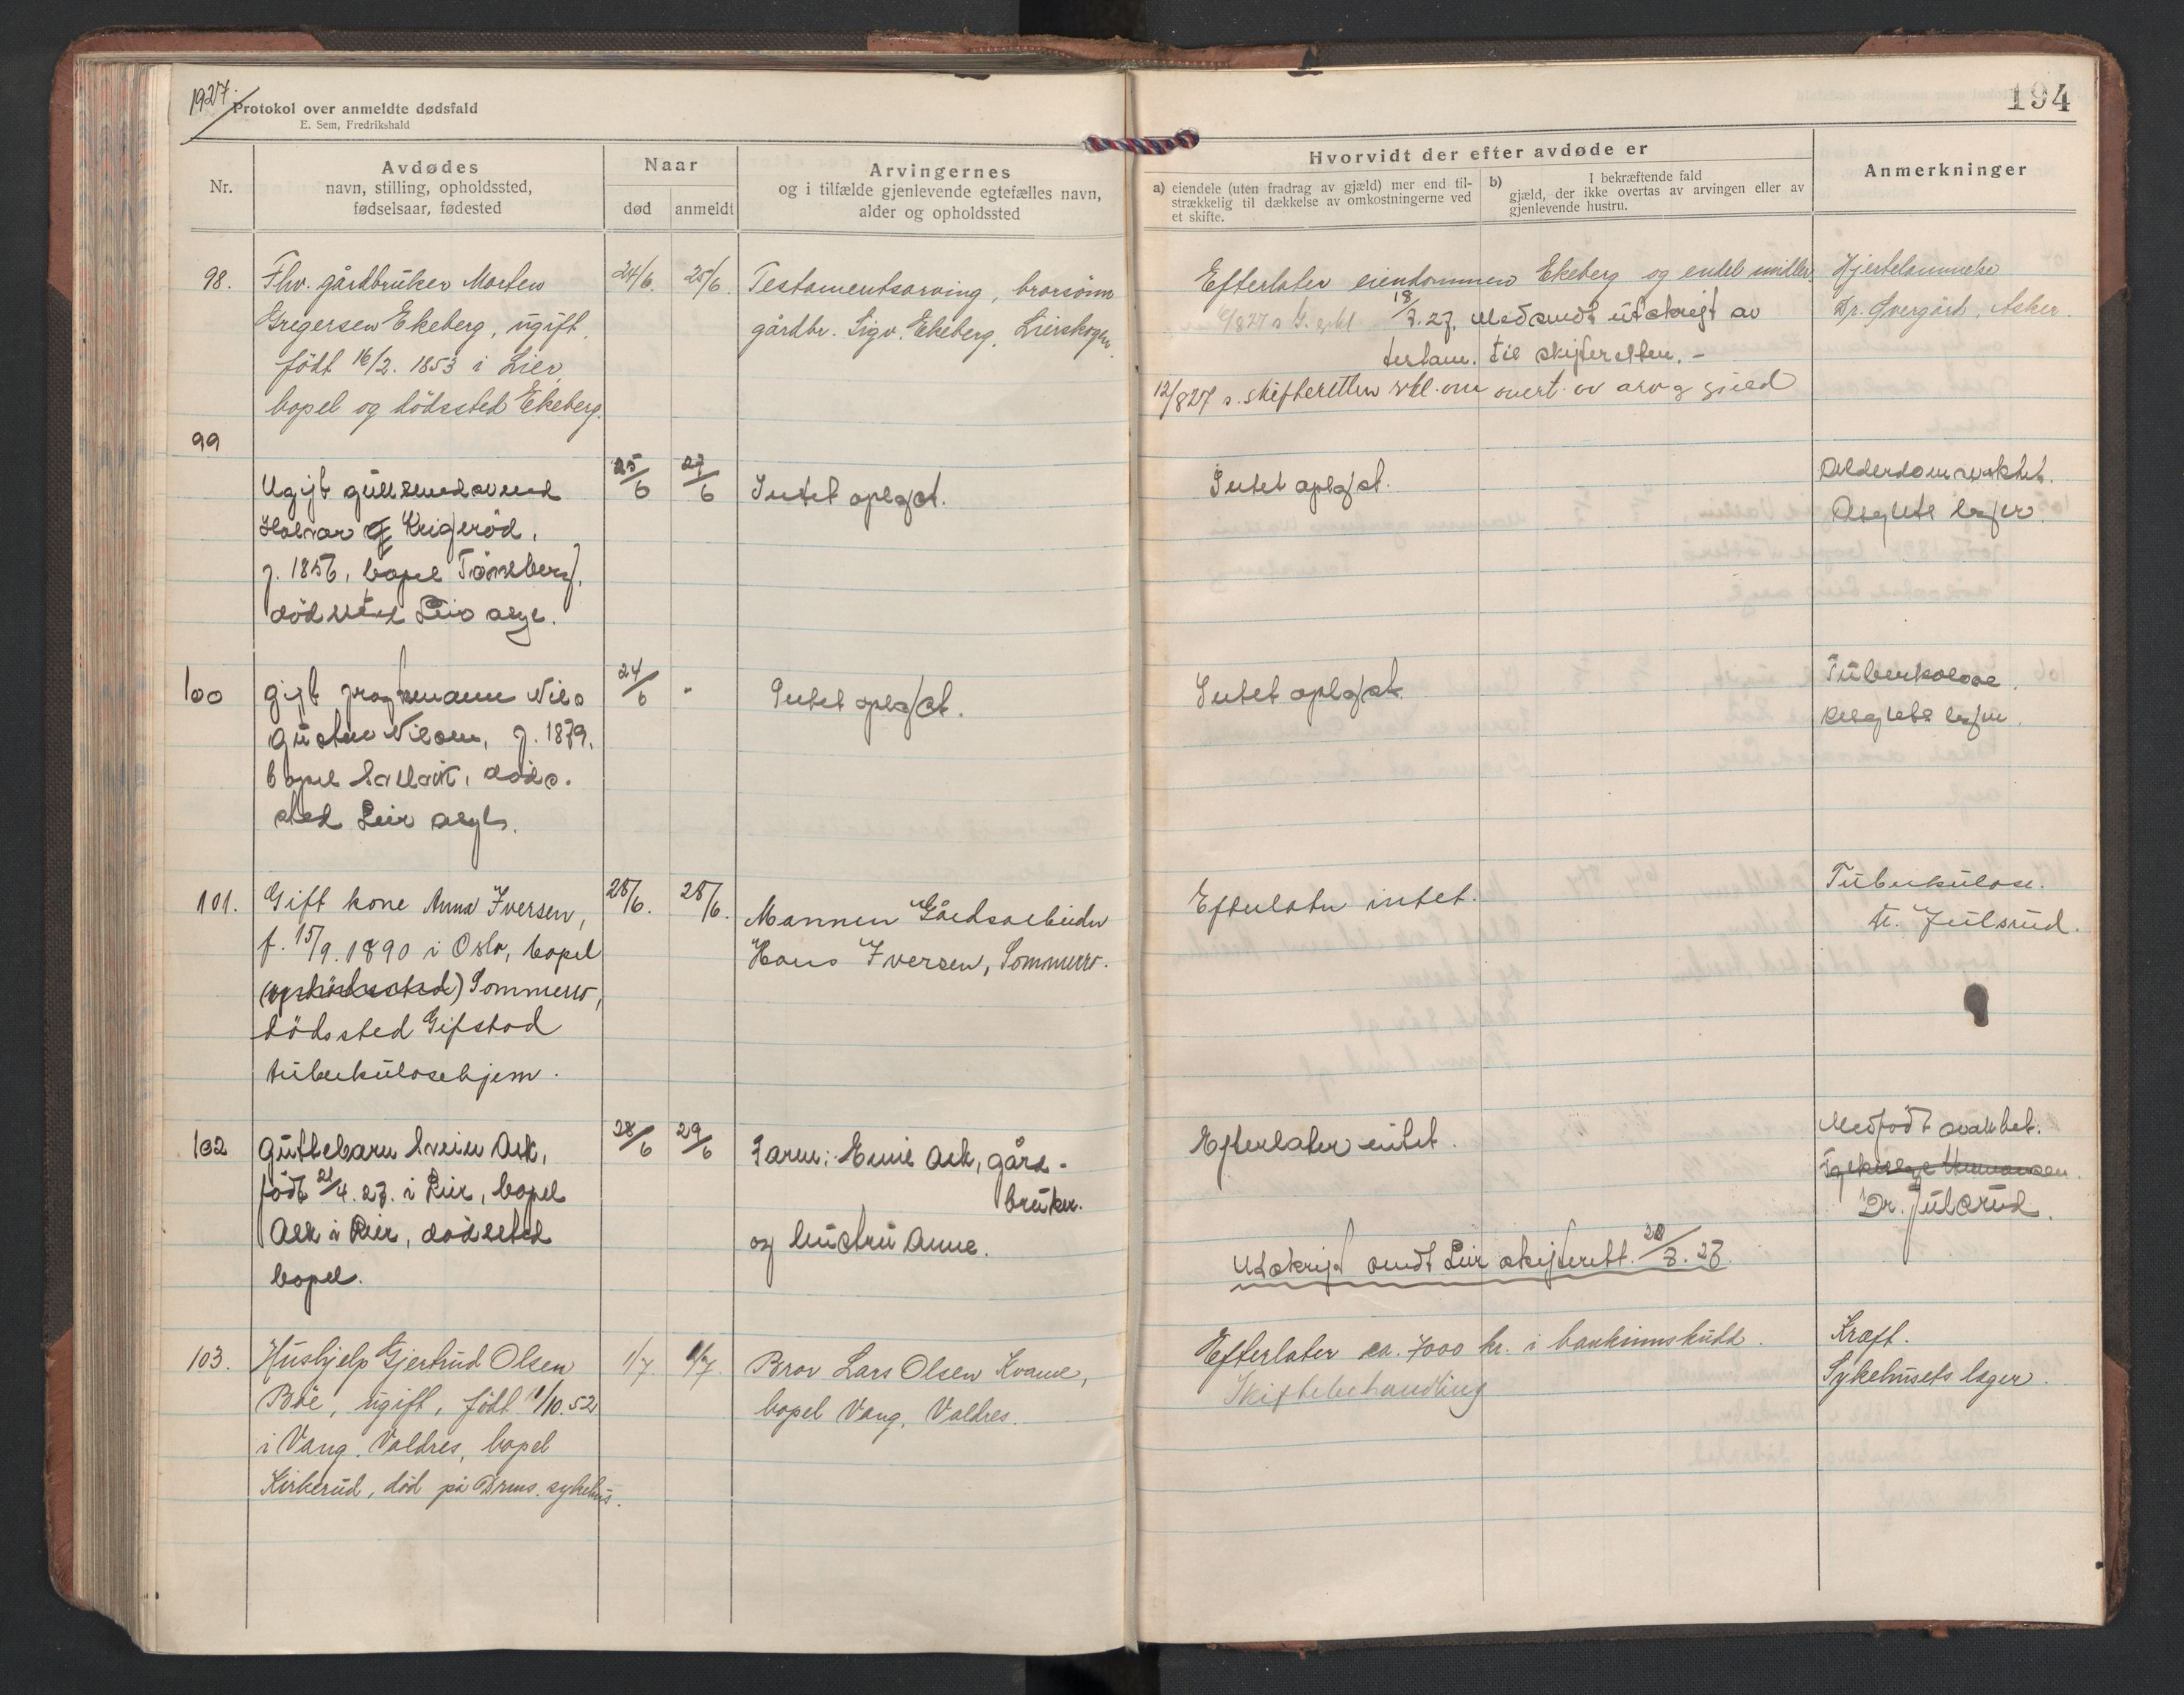 1927.
Protokol over anmeldte dødsfald
E. Sem, Fredrikshald
194
Nr.
Avdødes
navn, stilling, opholdssted,
fødselsaar, fødested
Naar
død
anmeldt
Arvingernes
og i tilfælde gjenlevende egtefælles navn,
alder og opholdssted
Hvorvidt der efter avdøde er
a) eiendele (uten fradrag av gjæld) mer end til-
strækkelig til dækkelse av omkostningerne ved
et skifte.
b) I bekræftende fald
gjæld, der ikke overtas av arvingen eller av
gjenlevende hustru.
Anmerkninger
98.
Fhv. gårdbruker Morten
Gregersen Ekeberg, ugift,
født 16/2. 1853 i Lier,
bopel og dödssted Ekeberg.
24/6.
25/6.
Testamentsarving, brorsönn
gårdbr. Sigv. Ekeberg, Lierskogen.
Efterlater eiendommen Ekeberg og endel midler.
18/7.27. Medsendt utskrift av
testam. til skifteretten. -
12/827 s. skifteretten erkl. om overt. av arv g gjeld
Hjertelammelse
Dr. Qvergård, Asker.
99
Ugift gullsmedsvend
Halvar Krigeröd,
f. 1856, bopel Tönsberg,
dödssted Lier asyl.
25/6
27/6
Intet oplyst.
Intet oplyst.
Alderdomsvakhet.
Asylets læger
100
Gift fragtemann Nils
Gustav Nilsen, f. 1879,
bopel, döds-
sted Lier asyl.
24/6
"
Intet oplyst.
Intet oplyst.
Tuberkulose.
Asylets læger.
101.
Gift kone Anna Iversen,
f. 15/9. 1890 i Oslo, bopel
Sommerro,
dödssted Gifstad
tuberkulosehjem.
28/6.
28/6.
Mannen Gårdsarbeider
Hans Iversen, Sommerro.
Efterlater intet.
Tuberkulose.
Dr. Julsrud.
102
Guttebarn Svein Ask,
født 21/4.27. i Lier, bopel
Ask i Lier, dödssted
bopel.
28/6
29/6
Foreldr.: Emil Ask, gård-
bruker.
og hustru Anne.
Efterlater intet.
Utskrift sendt Lier skifterett. 20/7.27.
Medfödt svakhet.
Dr. Julsrud.
103.
Hushjelp Gjertrud Olsen
Böe, ugift, født 11/10.52
i Vang, Valdres, bopel
Kirkerud, död på Drms. sykehus.
1/7.
1/7.
Bror Lars Olsen Kvame,
bopel Vang, Valdres.
Efterlater ca. 7000 kr. i bankinnskudd.
Skiftebehandling
Kræft.
Sykehusets læger.